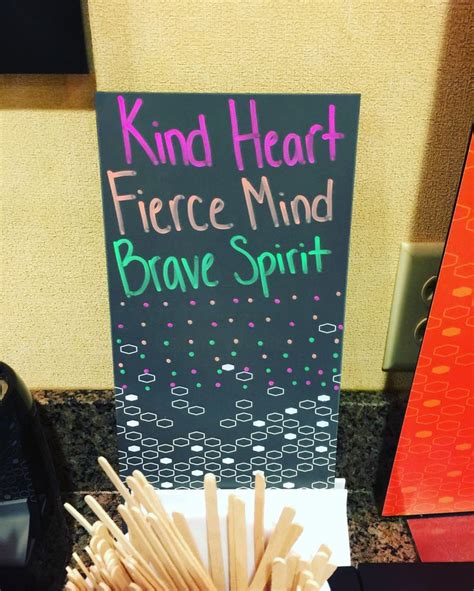 Kind Heart
Fierce Mind
Brave Spirit